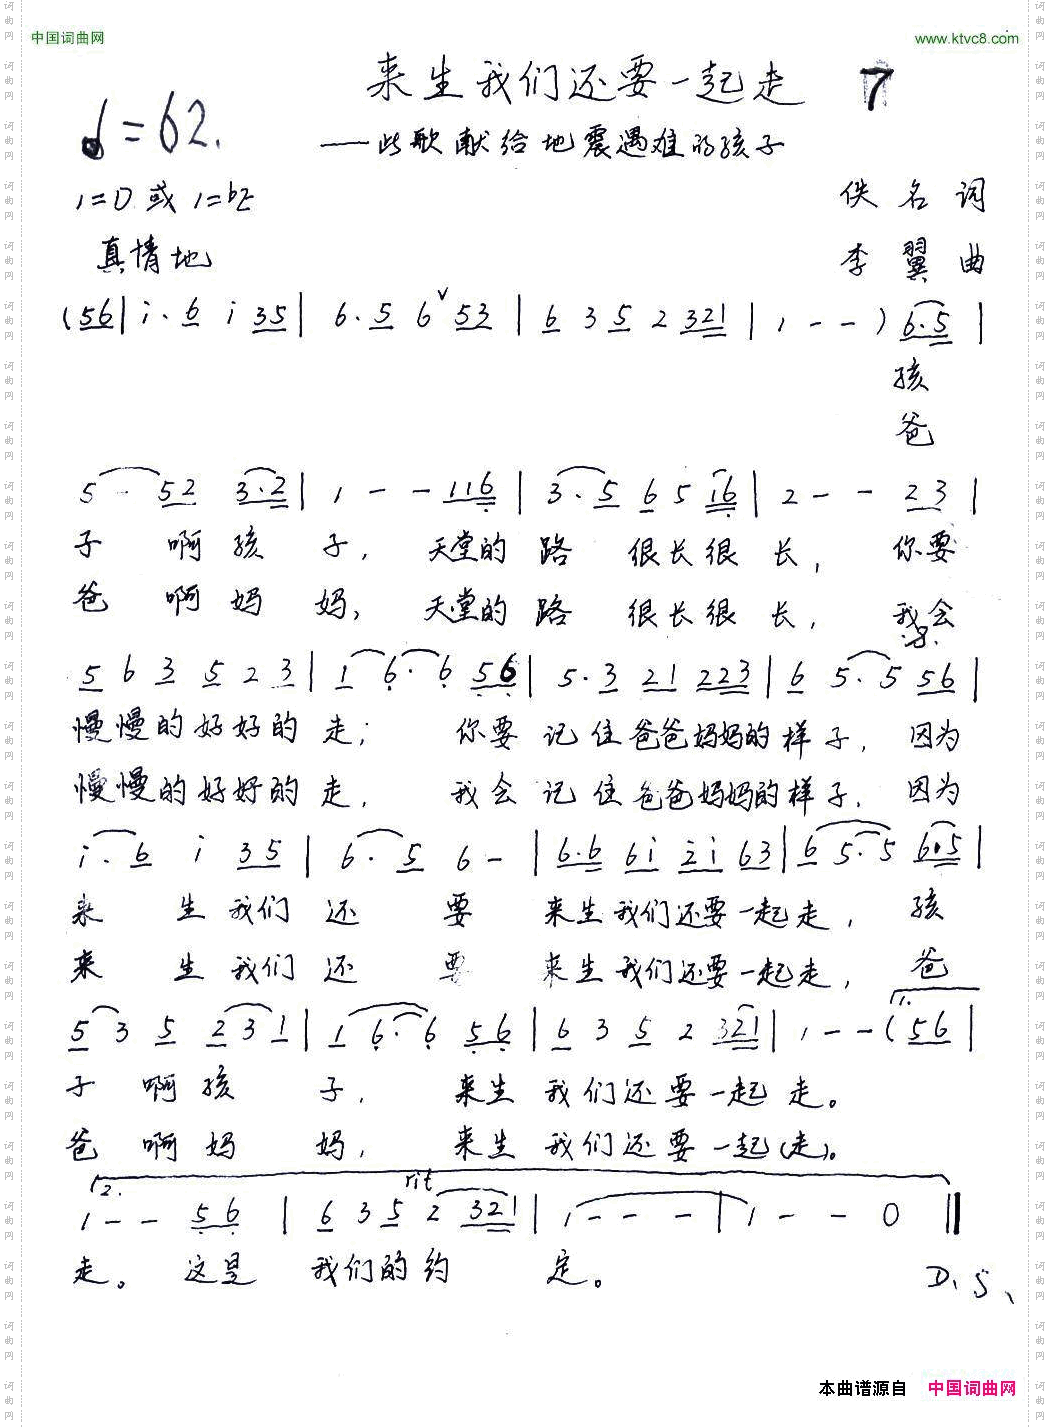 中国词曲网 www.ktvc8.com
来生我们还要一起走 7
——此歌献给地震遇难的孩子
♩=62.
1=D或1=bE 佚名词
真情地 李翼曲
(56|i·6 i 35|6·5 6ˇ53|6 3 5 2 321|1--)6·5|
孩
爸
5-52 3·2|1--116|3·5 6 5 16|2--23|
子啊孩子,天堂的路很长很长,你要
爸啊妈妈,天堂的路很长很长,我会
5 6 3 5 2 3|1 6·6 56|5·3 21 223|6 5·5 56|
慢慢的好好的走;你要记住爸爸妈妈的样子,因为
慢慢的好好的走,我会记住爸爸妈妈的样子,因为
i·6 i 35|6·5 6-|6·6 6i 2i 63|6 5·5 6·5|
来生我们还要来生我们还要一起走,孩
来生我们还要来生我们还要一起走,爸
1.
5 3 5 2 3 1|1 6·6 56|6 3 5 2 321|1--(56|
子啊孩子,来生我们还要一起走。
爸啊妈妈,来生我们还要一起(走)。
2. rit
1--56|6 3 5 2 321|1---|1--0‖
走。这是我们的约定。
D.S.
本曲谱源自 中国词曲网